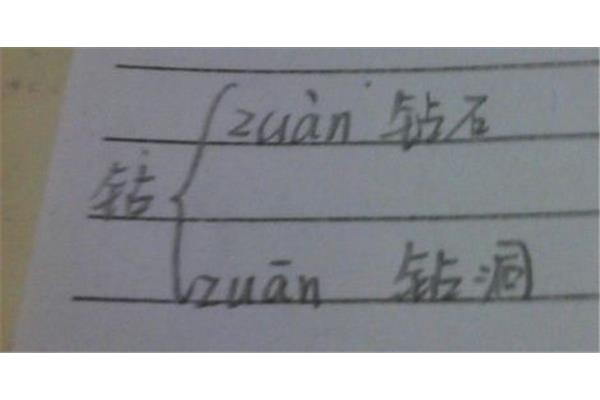 zuàn 钻石
钻
zuān 钻洞